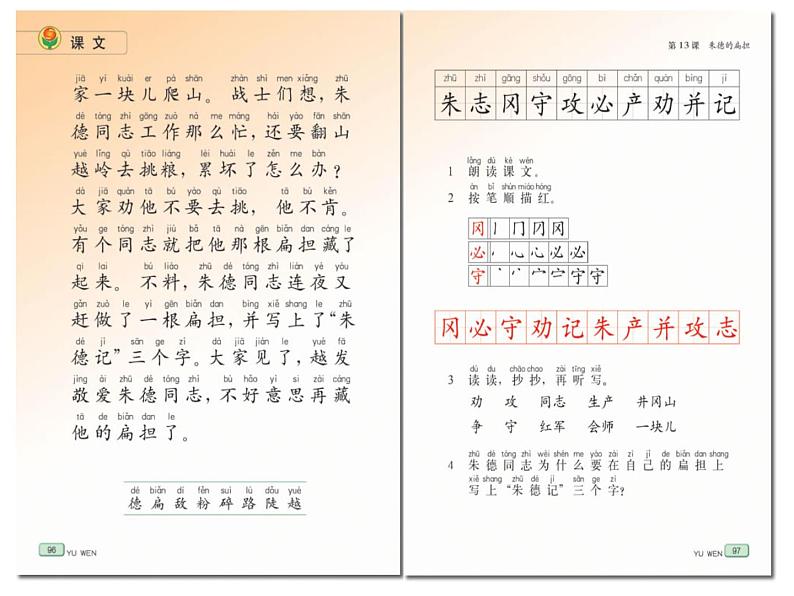 课文
jiā yí kuài er pá shān zhàn shì men xiǎng zhū
家一块儿爬山。战士们想，朱
dé tóng zhì gōng zuò nà me máng hái yào fān shān
德同志工作那么忙，还要翻山
yuè lǐng qù tiāo liáng lèi huài le zěn me bàn
越岭去挑粮，累坏了怎么办？
dà jiā quàn tā bú yào qù tiāo tā bù kěn
大家劝他不要去挑，他不肯。
yǒu ge tóng zhì jiù bǎ nà gēn biǎn dan cáng le
有个同志就把他那根扁担藏了
qǐ lai bú liào zhū dé tóng zhì lián yè yòu
起来。不料，朱德同志连夜又
gǎn zuò le yì gēn biǎn dan bìng xiě shang le zhū
赶做了一根扁担，并写上了“朱
dé jì sān ge zì dà jiā jiàn le yuè fā
德记”三个字。大家见了，越发
jìng ài zhū dé tóng zhì bù hǎo yì si zài cáng
敬爱朱德同志，不好意思再藏
tā de biǎn dan le
他的扁担了。
dé biǎn dí fěn suì lù dǒu yuè
德扁敌粉碎路陡越
96 YU WEN
第13课 朱德的扁担
zhū zhì gāng shǒu gōng bì chǎn quàn bìng jì
朱志冈守攻必产劝并记
lǎng dú kè wén
1 朗读课文。
àn bǐ shùn miáo hóng
2 按笔顺描红。
冈 丨 冂 冈 冈
必 丶 心 心 必 必
守 丶 丷 宀 宀 守 守
冈必守劝记朱产并攻志
dú du chāo chao zài tīng xiě
3 读读，抄抄，再听写。
劝 攻 同志 生产 井冈山
争 守 红军 会师 一块儿
zhū dé tóng zhì wèi shén me yào zài zì jǐ de biǎn dan shang
4 朱德同志为什么要在自己的扁担上
xiě shang zhū dé jì sān ge zì
写上“朱德记”三个字？
YU WEN 97